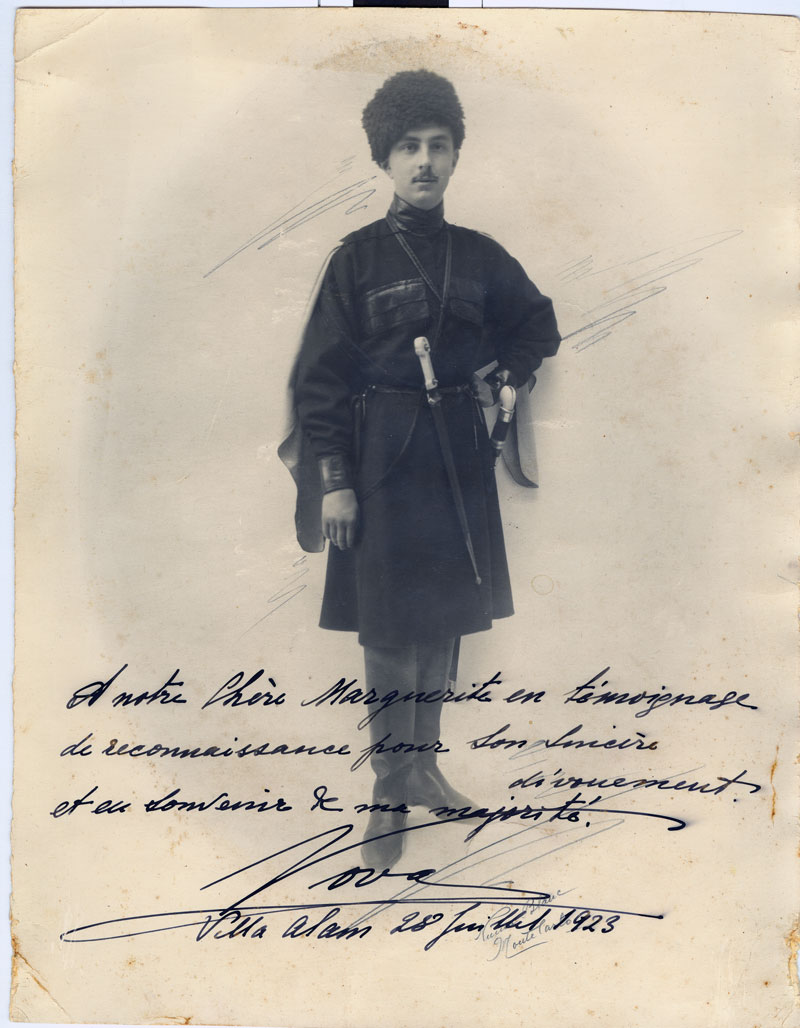 A notre Chère Marguerite en témoignage
de reconnaissance pour son sincère
dévouement.
et en souvenir de ma majorité.
Vova
Villa Alam 28 Juillet 1923
Monte Carlo